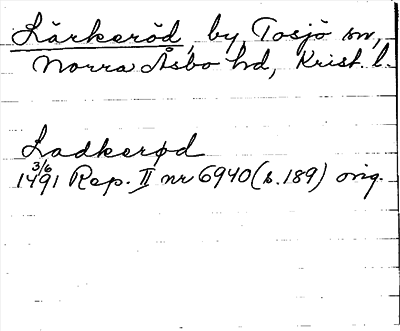 Lärkeröd, by Tosjö sn,
Norra Åsbo hd, Krist. l.
Ladkerød
3/6
1491 Rep. II nr 6940 (s. 189) orig.